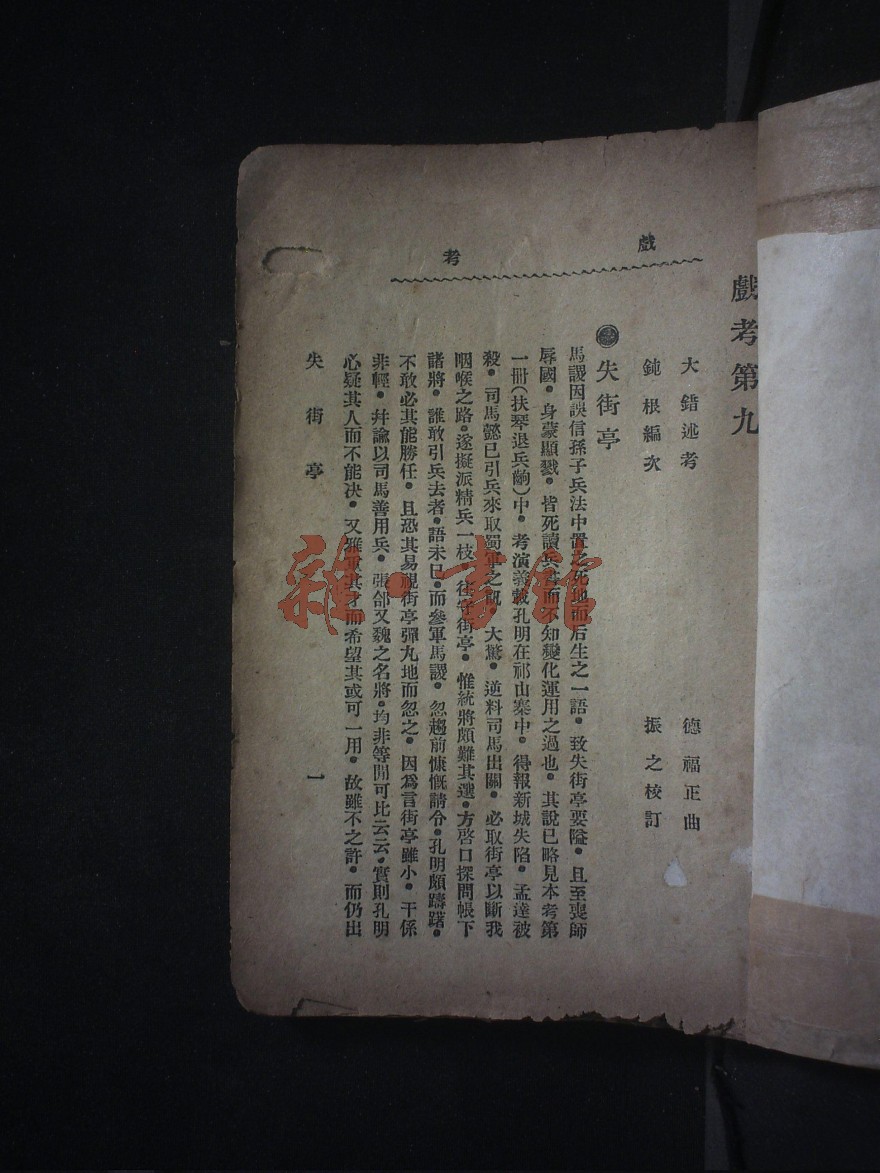 戲考
戲考第九
大錯述考 德福正曲
鈍根編次 振之校訂
失街亭
馬謖因誤信孫子兵法中置之死地而后生之一語。致失街亭要隘。且至喪師
辱國。身蒙顯戮。皆死讀兵書而不知變化運用之過也。其說已略見本考第
一冊(扶琴退兵齣)中。考演義載孔明在祁山寨中。得報新城失陷。孟達被
殺。司馬懿已引兵來取蜀軍之訊。大驚。逆料司馬出關。必取街亭以斷我
咽喉之路。遂擬派精兵一枝。往守街亭。惟統將頗難其選。方啓口探問帳下
諸將。誰敢引兵去者。語未已。而參軍馬謖。忽趨前慷慨請令。孔明頗躊躇。
不敢必其能勝任。且恐其易視街亭彈丸地而忽之。因爲言街亭雖小。干係
非輕。幷諭以司馬善用兵。張郃又魏之名將。均非等閒可比云云。實則孔明
心疑其人而不能决。又雖重其才而希望其或可一用。故雖不之許。而仍出
失街亭 一
雜·書館